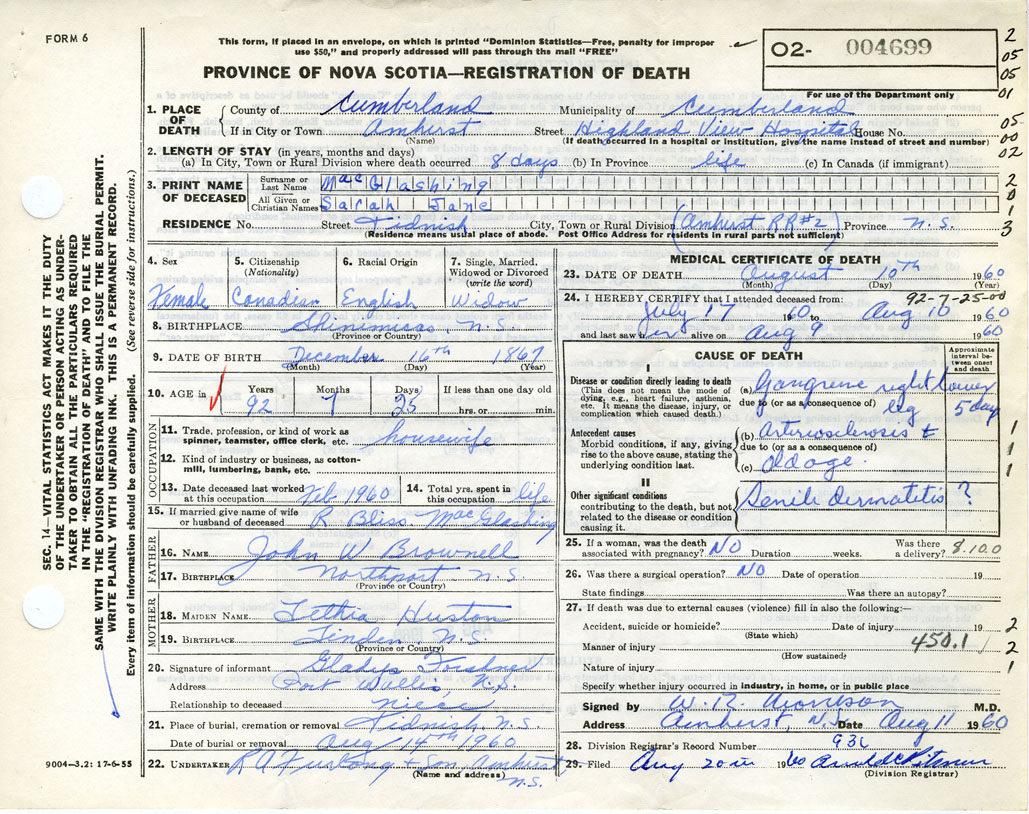 FORM 6
This form, if placed in an envelope, on which is printed "Dominion Statistics—Free, penalty for improper
use $50," and properly addressed will pass through the mail "FREE"
PROVINCE OF NOVA SCOTIA—REGISTRATION OF DEATH
O2- 004699
For use of the Department only
2
05
05
01
05
00
02
2
0
1
3
SEC. 14—VITAL STATISTICS ACT MAKES IT THE DUTY
OF THE UNDERTAKER OR PERSON ACTING AS UNDER-
TAKER TO OBTAIN ALL THE PARTICULARS REQUIRED
IN THE "REGISTRATION OF DEATH" AND TO FILE THE
SAME WITH THE DIVISION REGISTRAR WHO SHALL ISSUE THE BURIAL PERMIT.
WRITE PLAINLY WITH UNFADING INK. THIS IS A PERMANENT RECORD.
Every item of information should be carefully supplied. (See reverse side for instructions.)
1. PLACE OF DEATH
County of Cumberland Municipality of Cumberland
If in City or Town Amherst Street Highland View Hospital House No.
(Name) (If death occurred in a hospital or institution, give the name instead of street and number)
2. LENGTH OF STAY (in years, months and days)
(a) In City, Town or Rural Division where death occurred 8 days (b) In Province life (c) In Canada (if immigrant)
3. PRINT NAME OF DECEASED
Surname or Last Name MacGlashing
All Given or Christian Names Sarah Jane
RESIDENCE No. Street Tidnish City, Town or Rural Division (Amherst RR#2) Province N.S.
(Residence means usual place of abode. Post Office Address for residents in rural parts not sufficient)
4. Sex Female
5. Citizenship (Nationality) Canadian
6. Racial Origin English
7. Single, Married, Widowed or Divorced (write the word) Widow
8. BIRTHPLACE Shinimicas, N.S.
(Province or Country)
9. DATE OF BIRTH December 16th 1867
(Month) (Day) (Year)
10. AGE in Years 92 Months 7 Days 25 If less than one day old hrs. or min.
OCCUPATION
11. Trade, profession or kind of work as
spinner, teamster, office clerk, etc. housewife
12. Kind of industry or business, as cotton-
mill, lumbering, bank, etc.
13. Date deceased last worked
at this occupation Feb 1960
14. Total yrs. spent in
this occupation life
15. If married give name of wife
or husband of deceased R Bliss MacGlashing
FATHER
16. NAME John W Brownell
17. BIRTHPLACE Northport N.S.
(Province or Country)
MOTHER
18. MAIDEN NAME Huston
19. BIRTHPLACE Linden N.S
(Province or Country)
20. Signature of informant Gladys
Address Port N.S.
Relationship to deceased niece
21. Place of burial, cremation or removal Tidnish N.S.
Date of burial or removal Aug 14th 1960
22. UNDERTAKER R A Furlong & Son Amherst
(Name and address) N.S.
9004—3.2: 17-6-55
MEDICAL CERTIFICATE OF DEATH
23. DATE OF DEATH August 10th 1960
(Month) (Day) (Year)
92-7-25-00
24. I HEREBY CERTIFY that I attended deceased from:
July 17 1960 to Aug 10 1960
and last saw her alive on Aug 9 1960
CAUSE OF DEATH
Approximate interval between onset and death
I
Disease or condition directly leading to death
(This does not mean the mode of
dying, e.g., heart failure, asthenia,
etc. It means the disease, injury, or
complication which caused death.)
(a) Gangrene right lower
due to (or as a consequence of) leg 5 day
Antecedent causes
Morbid conditions, if any, giving
rise to the above cause, stating the
underlying condition last.
(b) Arteriosclerosis &
due to (or as a consequence of)
(c) Old age.
1
1
1
II
Other significant conditions
contributing to the death, but not
related to the disease or condition
causing it.
Senile dermatitis ?
25. If a woman, was the death
associated with pregnancy? NO Duration weeks. Was there
a delivery? 8.10.0
26. Was there a surgical operation? NO Date of operation 19
State findings Was there an autopsy?
27. If death was due to external causes (violence) fill in also the following:—
Accident, suicide or homicide? Date of injury 19 2
(State which)
Manner of injury 450.1 2
(How sustained)
Nature of injury 1
Specify whether injury occurred in industry, in home, or in public place
Signed by W. R. Morrison M.D.
Address Amherst, N.S. Date Aug 11 1960
28. Division Registrar's Record Number 936
29. Filed Aug 20th 1960
(Division Registrar)